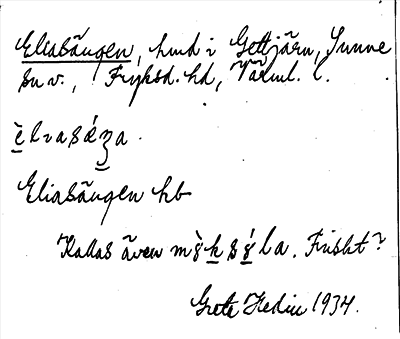 Eliasängen, hmd i Gettjärn, Sunne
sn v., Fryksd. hd, Värml. l.
èlıasǽŋa.
Eliasängen hb
Kallas även mỳksýla. Finskt?
Greta Hedin 1934.